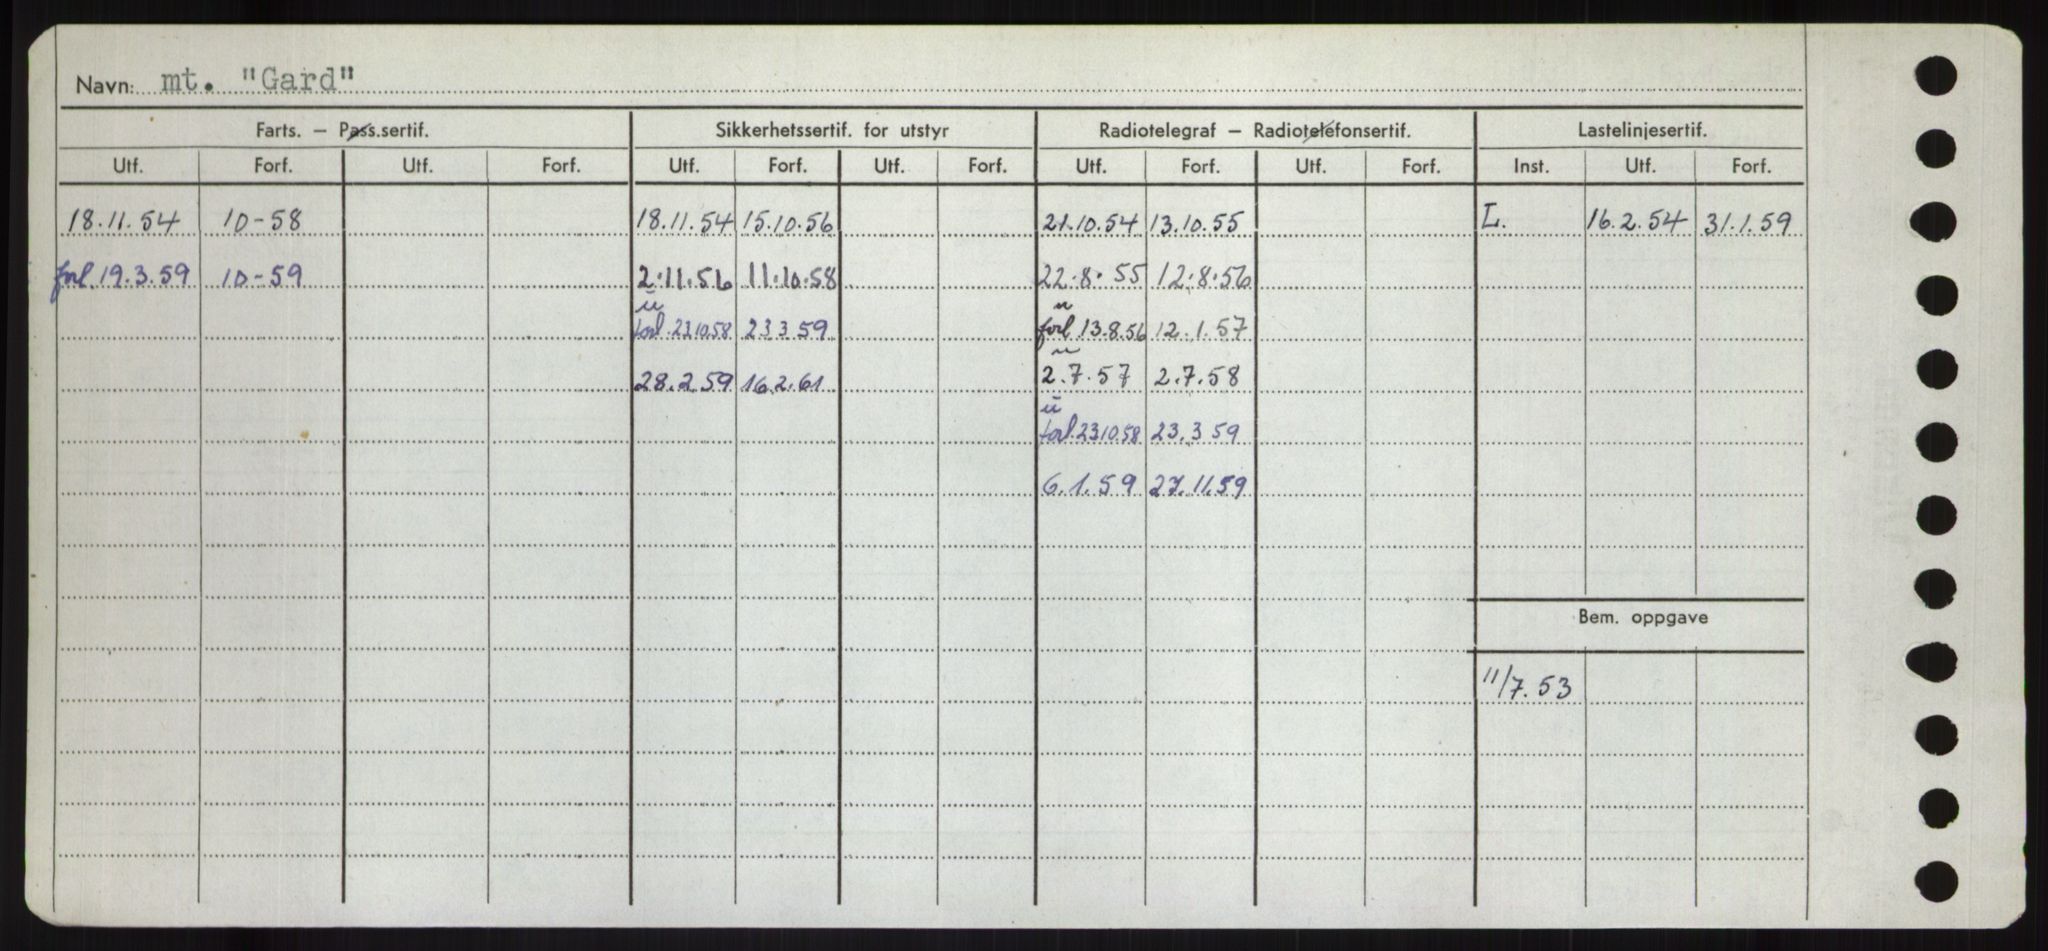 Navn: mt. "Gard"
Farts. – Pass.sertif. Sikkerhetssertif. for utstyr Radiotelegraf – Radiotelefonsertif. Lastelinjesertif.
Utf. Forf. Utf. Forf. Utf. Forf. Utf. Forf. Utf. Forf. Utf. Forf. Inst. Utf. Forf.
18.11.54 10-58 18.11.54 15.10.56 21.10.54 13.10.55 L. 16.2.54 31.1.59
forl. 19.3.59 10-59 2.11.56 11.10.58 22.8.55 12.8.56
u n
forl. 23.10.58 23 3 59 forl 13.8.56 12.1.57
u
28.2.59 16.2.61 2.7.57 2.7.58
u
forl. 23.10.58 23.3 59
6.1.59 27.11.59
Bem. oppgave
11/7.53